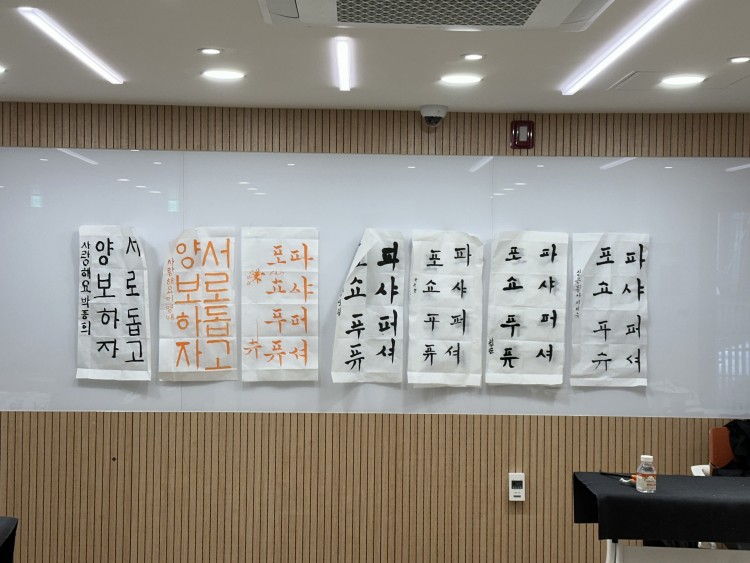 서로돕고
양보하자
사랑해요박종희
서로돕고
양보하자
사랑해요
파샤퍼셔
포쇼푸슈
파샤퍼셔
포쇼푸퓨
파샤퍼셔
포쇼푸퓨
파샤퍼셔
포쇼푸퓨
파샤퍼셔
포쇼푸슈